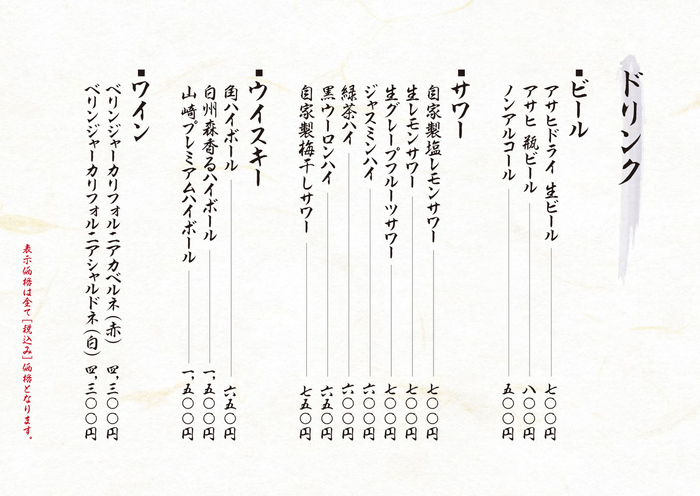 ドリンク
■ビール
アサヒドライ 生ビール 七〇〇円
アサヒ 瓶ビール 八〇〇円
ノンアルコール 五〇〇円
■サワー
自家製塩レモンサワー 七〇〇円
生レモンサワー 七〇〇円
生グレープフルーツサワー 七〇〇円
ジャスミンハイ 六〇〇円
緑茶ハイ 六〇〇円
黒ウーロンハイ 六五〇円
自家製梅干しサワー 七五〇円
■ウイスキー
角ハイボール 六五〇円
白州森香るハイボール 一,五〇〇円
山崎プレミアムハイボール 一,五〇〇円
■ワイン
ベリンジャーカリフォルニアカベルネ(赤) 四,三〇〇円
ベリンジャーカリフォルニアシャルドネ(白) 四,三〇〇円
表示価格は全て[税込み]価格となります。